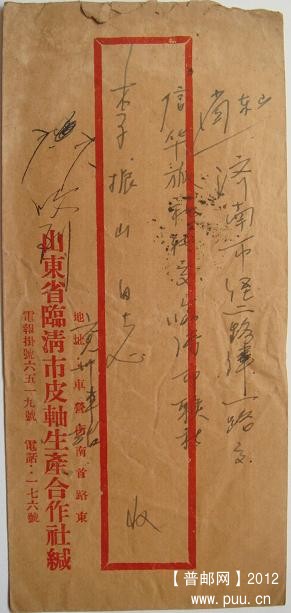 山东省
济南市经二路纬一路交
信华旅社转交临清市联社
李振山同志
收
山東省臨清市皮軸生產合作社緘
地址：車營街南首路東
電報掛號六五一九號 電話：一七六號
【普邮网】2012
www.puu.cn